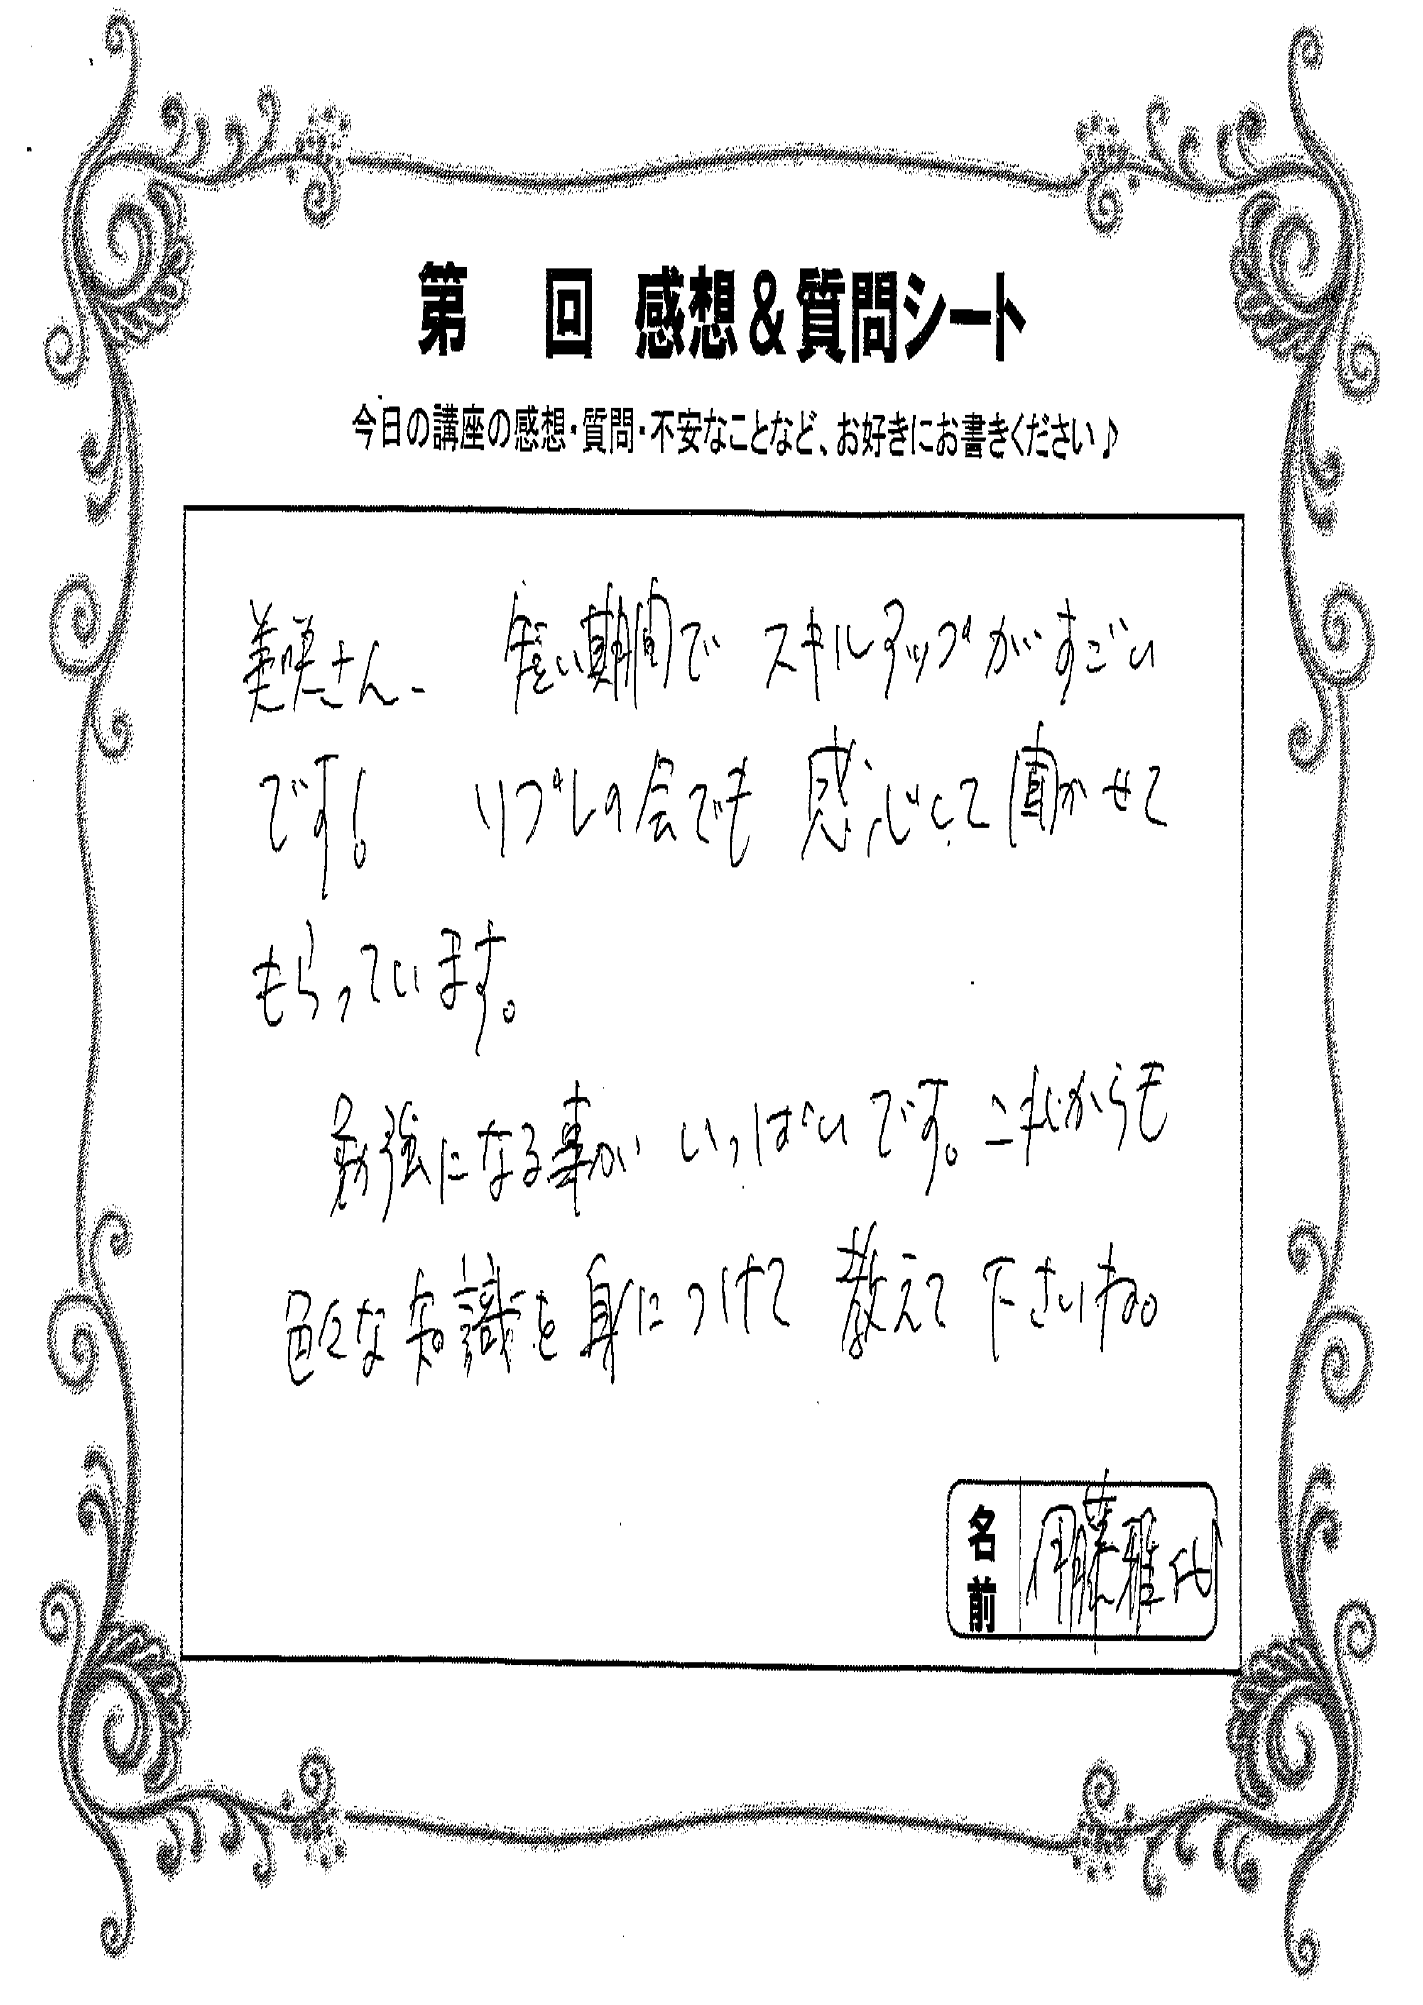 第　回 感想&質問シート
今日の講座の感想・質問・不安なことなど、お好きにお書きください♪
美咲さん、 短い期間で スキルアップがすごい
です! リプレの会でも 感心して聞かせて
もらっています。
勉強になる事がいっぱいです。これからも
色々な知識を身につけて 教えて下さいね。
名前 伊藤雅代